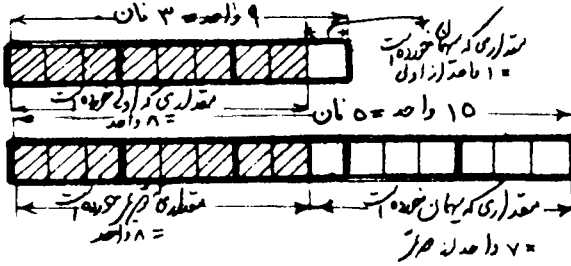 ۹ واحد = ۳ نان
مقداری که مهمان خورده است
= ۱ واحد از اولی
مقداری که اولی خورده است
= ۸ واحد
۱۵ واحد = ۵ نان
مقداری که خورده است
= ۸ واحد
مقداری که مهمان خورده است
= ۷ واحد از